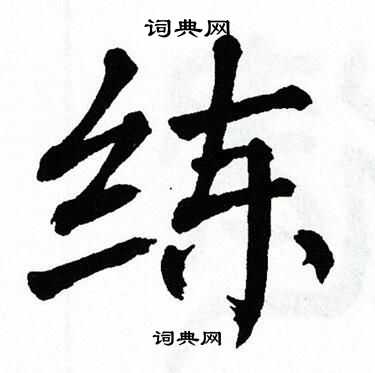 词典网
练
词典网